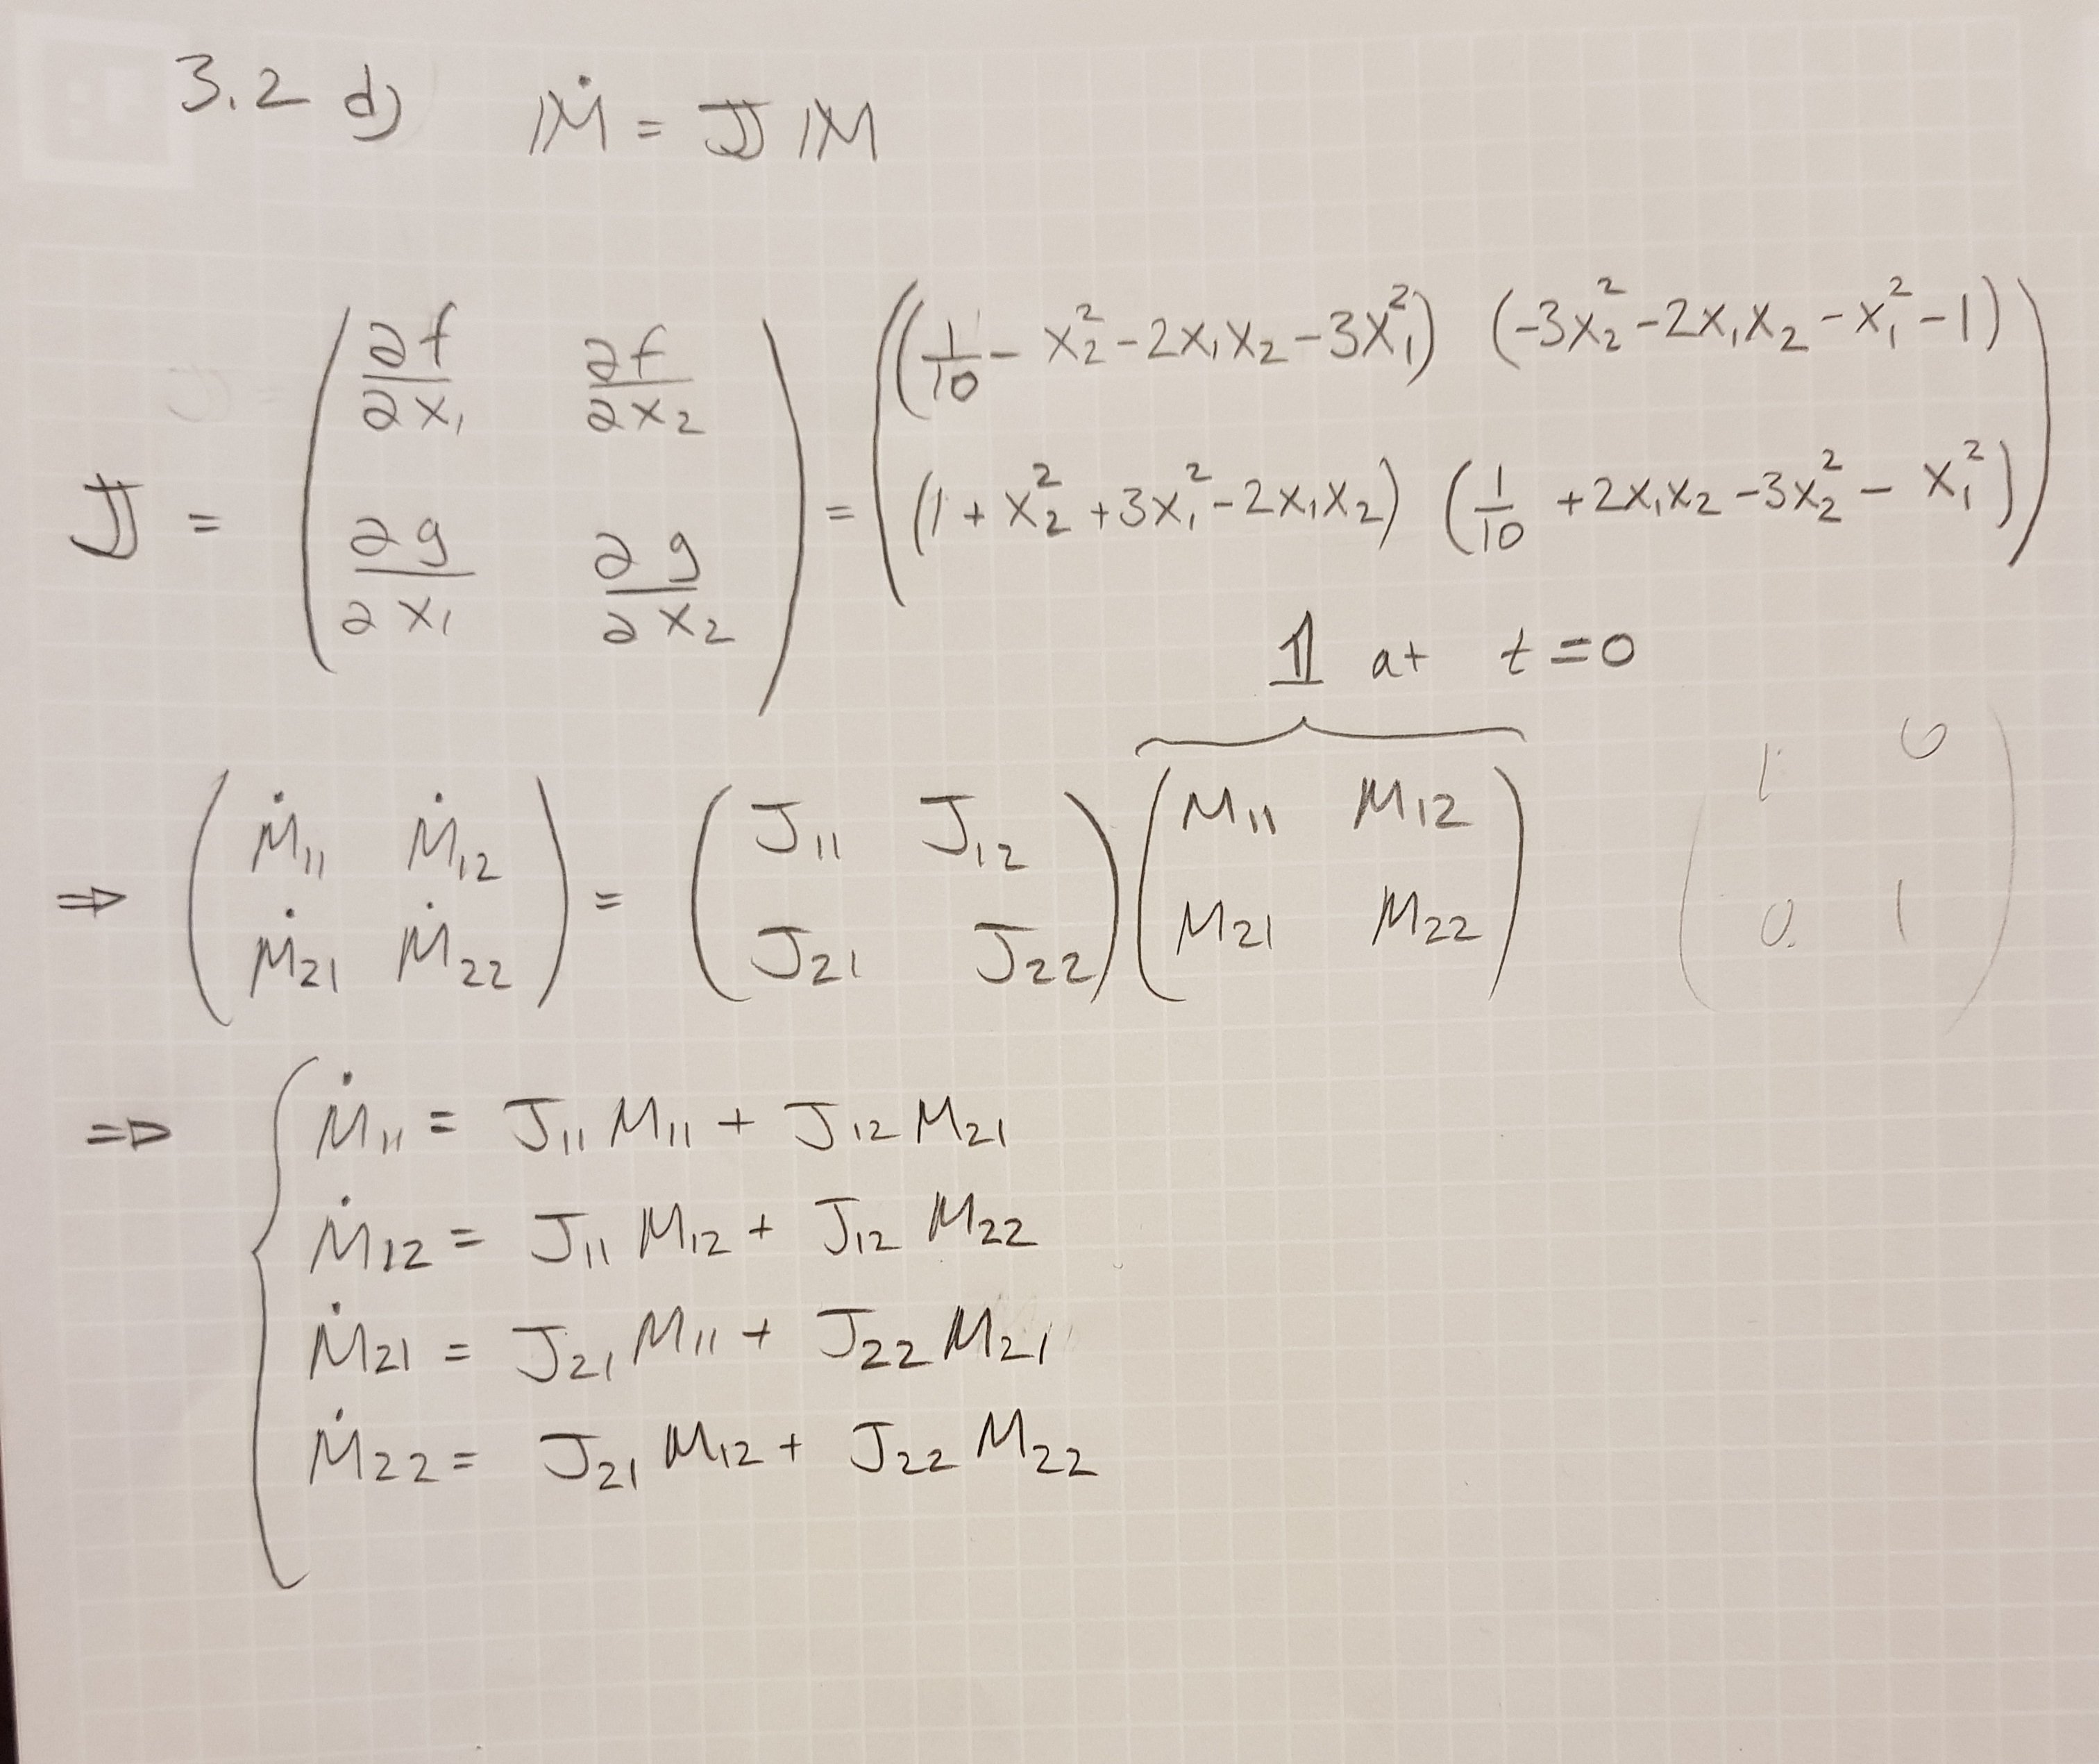 3.2 d) 𝕄̇ = 𝕁 𝕄
𝕁 = ( ∂f/∂x₁ ∂f/∂x₂ ; ∂g/∂x₁ ∂g/∂x₂ ) = ( (1/10 - x₂² - 2x₁x₂ - 3x₁²) (-3x₂² - 2x₁x₂ - x₁² - 1) ; (1 + x₂² + 3x₁² - 2x₁x₂) (1/10 + 2x₁x₂ - 3x₂² - x₁²) )
𝟙 at t=0
⇒ ( Ṁ₁₁ Ṁ₁₂ ; Ṁ₂₁ Ṁ₂₂ ) = ( J₁₁ J₁₂ ; J₂₁ J₂₂ ) ( M₁₁ M₁₂ ; M₂₁ M₂₂ ) ( 1 0 ; 0 1 )
⇒ { Ṁ₁₁ = J₁₁ M₁₁ + J₁₂ M₂₁
Ṁ₁₂ = J₁₁ M₁₂ + J₁₂ M₂₂
Ṁ₂₁ = J₂₁ M₁₁ + J₂₂ M₂₁
Ṁ₂₂ = J₂₁ M₁₂ + J₂₂ M₂₂